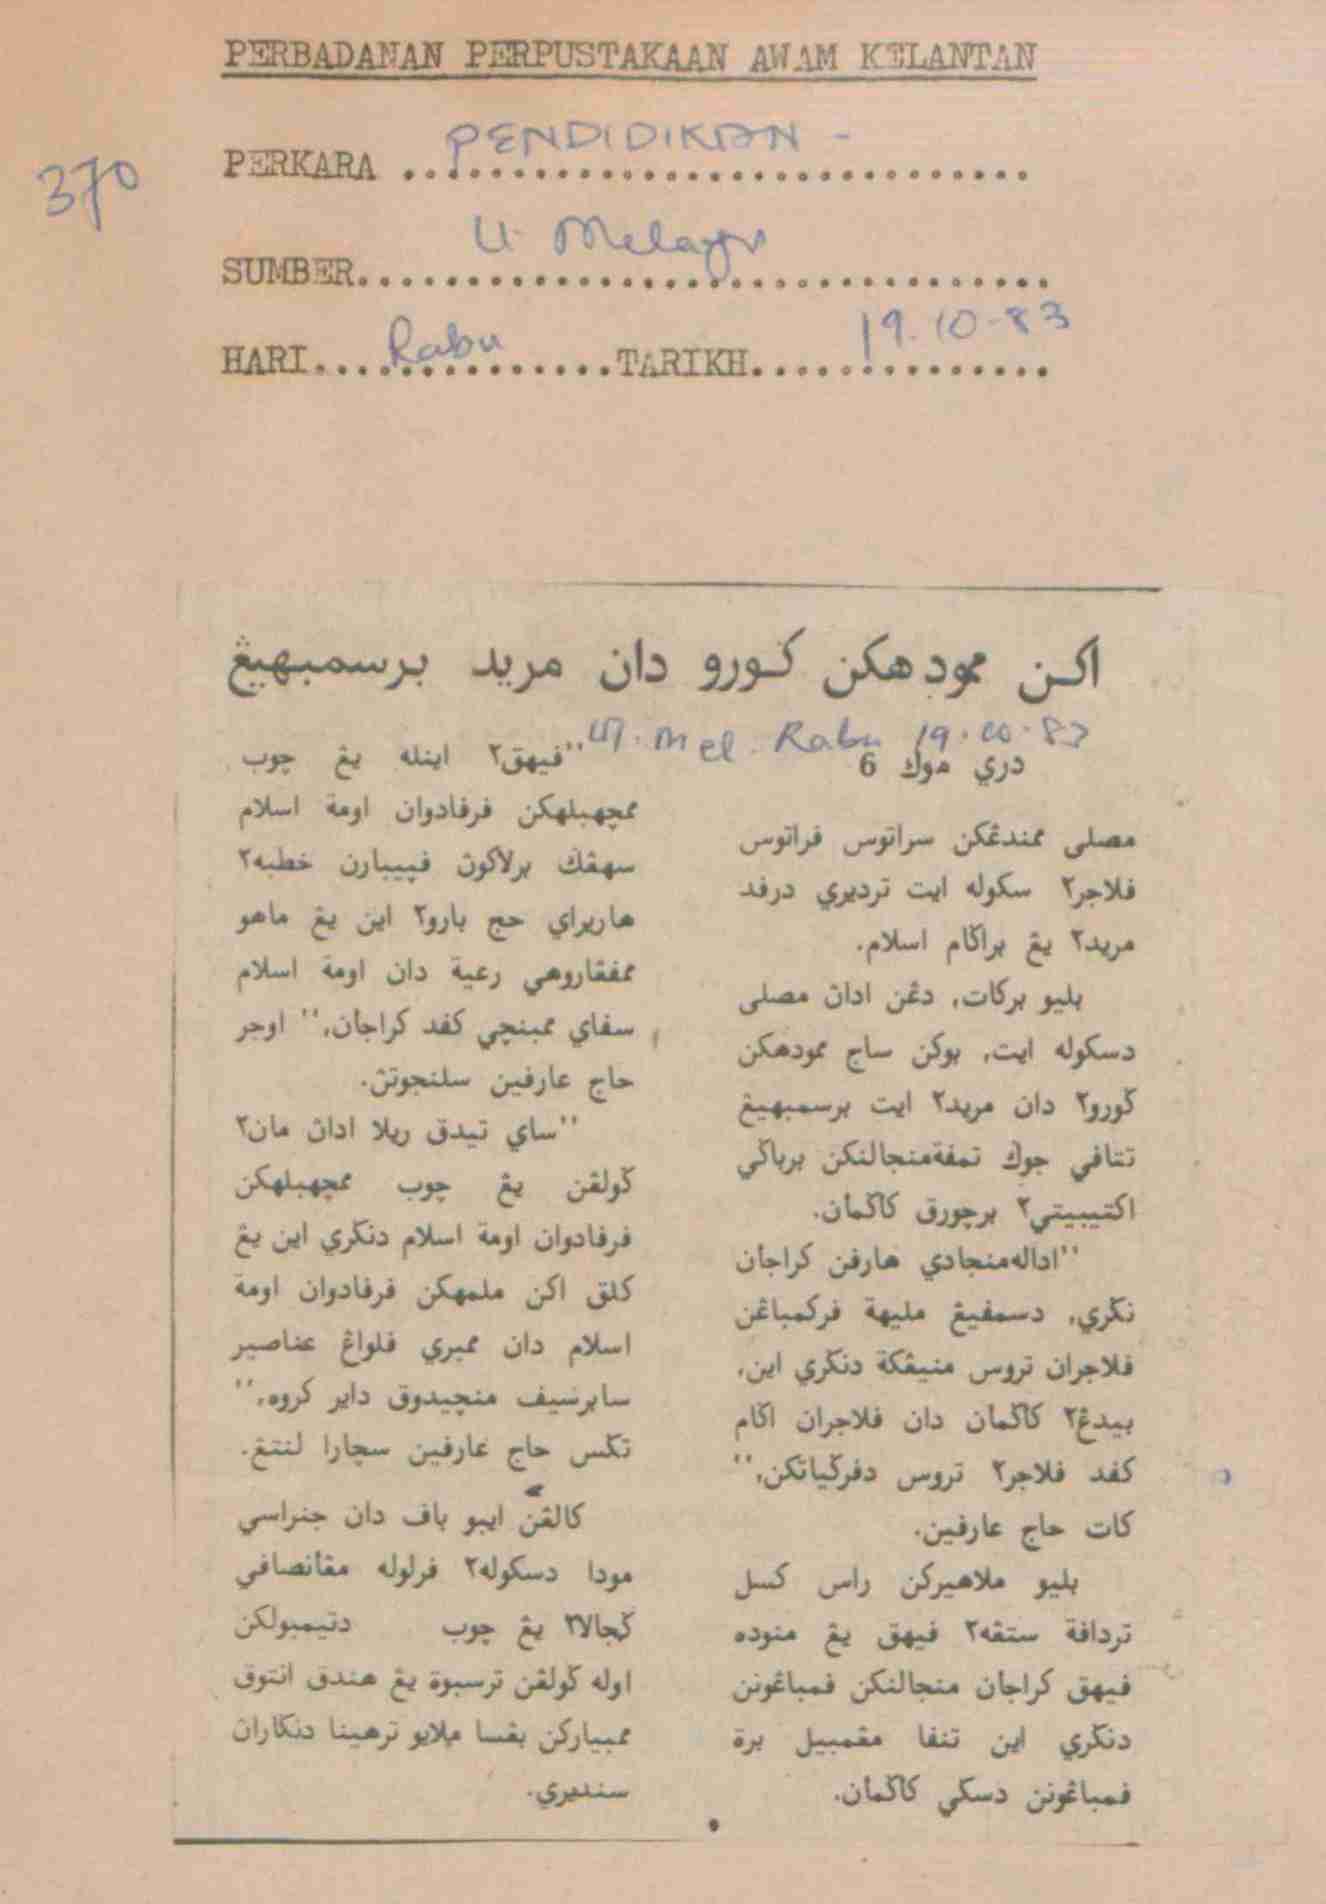 PERBADANAN PERPUSTAKAAN AWAM KELANTAN
370
PERKARA PENDIDIKAN -
SUMBER U. Melayu
HARI Rabu TARIKH 19.10-83
اکن ممودهکن ݢورو دان مريد برسمبهيڠ
U. Mel. Rabu 19.10.83
دري موک 6
مصلى ممندڠکن سراتوس فراتوس
فلاجر٢ سکوله ايت ترديري درفد
مريد٢ يڠ براݢام اسلام.
بليو برکات, دڠن اداڽ مصلى
دسکوله ايت, بوکن ساج ممودهکن
ݢورو٢ دان مريد٢ ايت برسمبهيڠ
تتافي جوݢ تمفة منجالنکن برباݢي
اکتيبيتي٢ برچورق کاݢمأن.
''اداله منجادي هارفن کراجأن
نݢري, دسمفيڠ مليهة فرکمباڠن
فلاجران تروس منيڠکة دنݢري اين,
بيدڠ٢ کاݢمأن دان فلاجران اݢام
کفد فلاجر٢ تروس دفرݢياتکن,''
کات حاج عارفين.
بليو ملاهيرکن راس کسل
تردافة ستڠه٢ فيهق يڠ منوده
فيهق کراجأن منجالنکن فمباڠونن
دنݢري اين تنفا مڠمبيل برة
فمباڠونن دسݢي کاݢمأن.
''فيهق٢ اينله يڠ چوب
ممچهبلهکن فرفادوان اومة اسلام
سهڠݢ برلاکوڽ فپيبارن خطبه٢
هاريراي حج بارو٢ اين يڠ ماهو
ممفڠاروهي رعية دان اومة اسلام
سفاي ممبنچي کفد کراجأن,'' اوجر
حاج عارفين سلنجوتڽ.
''ساي تيدق ريلا اداڽ مان٢
ݢولڠن يڠ چوب ممچهبلهکن
فرفادوان اومة اسلام دنݢري اين يڠ
کلق اکن ملمهکن فرفادوان اومة
اسلام دان ممبري فلواڠ عناصير
سابرسيف منچيدوق داير کروه,''
تݢس حاج عارفين سچارا لنتڠ.
کالڠن ايبو باف دان جنراسي
مودا دسکوله٢ فرلوله مڠانصافي
ݢجالا٢ يڠ چوب دتيمبولکن
اوله ݢولڠن ترسبوة يڠ هندق انتوق
ممبيارکن بڠسا ملايو ترهينا دنݢاران
سنديري.